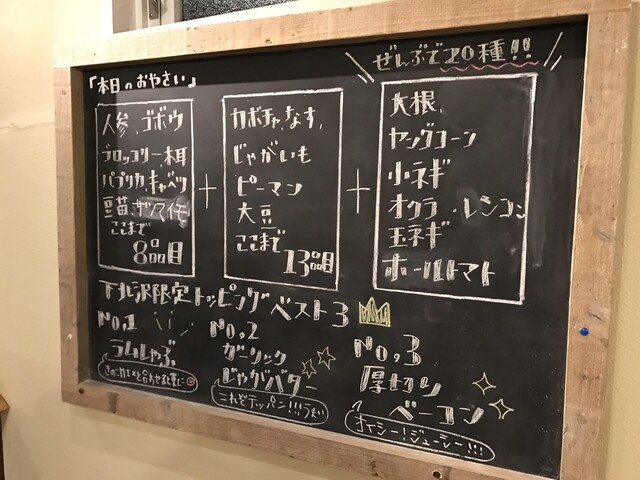 「本日のおやさい」
ぜんぶで20種!!
人参、ゴボウ
ブロッコリー木耳
パプリカ、キャベツ
豆苗、サツマイモ
ここまで
8品目
+
カボチャ、なす、
じゃがいも
ピーマン
大豆
ここまで
13品目
+
大根、
ヤングコーン
小ネギ
オクラ・レンコン
玉ネギ
ホールトマト
下北沢限定トッピングベスト3
No,1
ラムしゃぶ
No,2
ガーリック
じゃがバター
これぞテッパン!!!うまい
No,3
厚切り
ベーコン
オイシー!ジューシー!!!